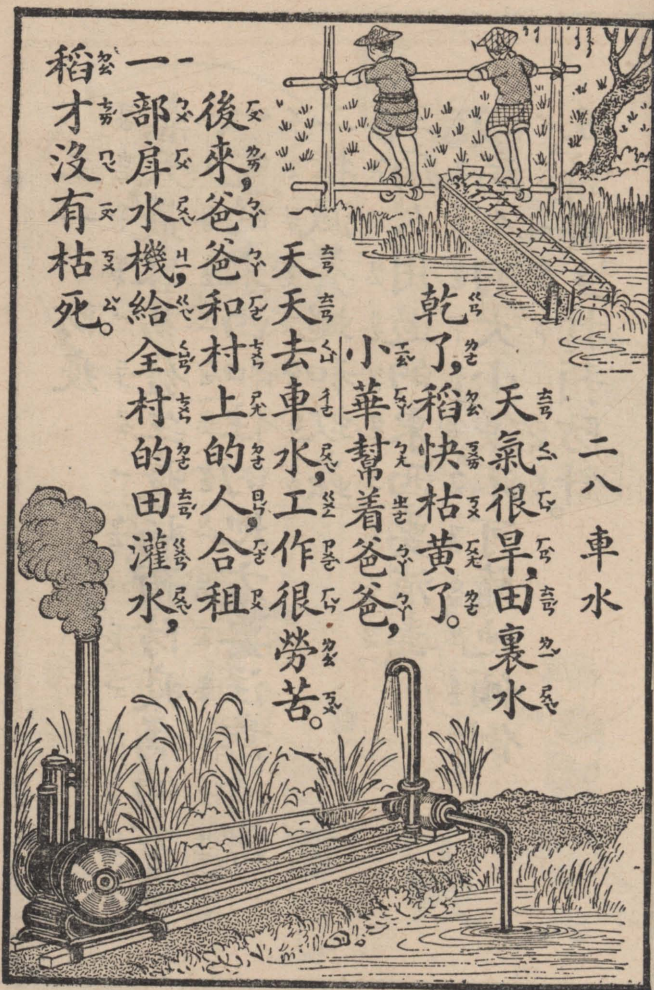 二八 車水
天氣很旱,田裏水
乾了,稻快枯黃了。
小華幫着爸爸,
天天去車水,工作很勞苦。
後來,爸爸和村上的人,合租
一部戽水機,給全村的田灌水,
稻才沒有枯死。